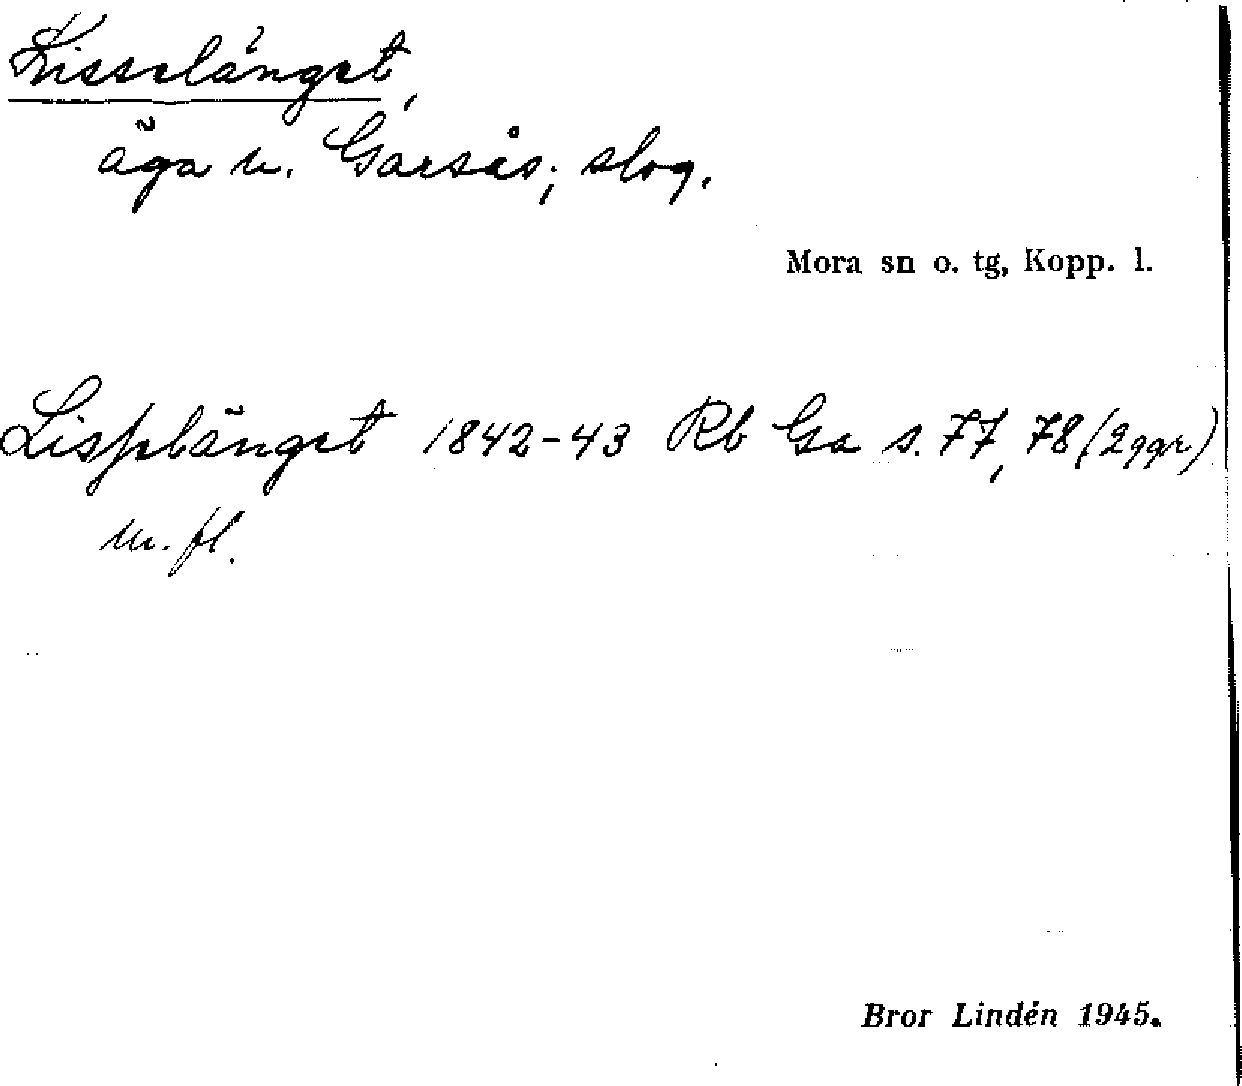 Lisselänget,
äga u. Garsås; slog.
Mora sn o. tg, Kopp. l.
Lisselänget 1842-43 Rb Ga s. 77, 78 (2 ggr)
m. fl.
Bror Lindén 1945.